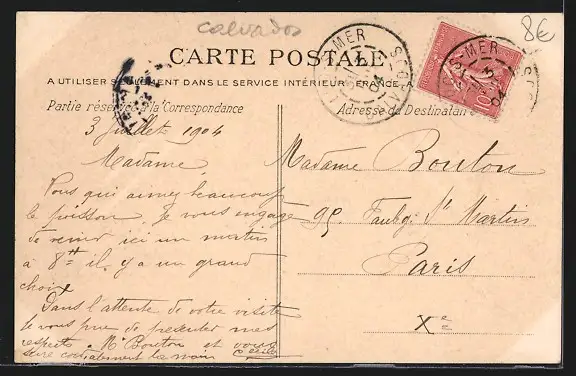 calvados
8€
CARTE POSTALE
A UTILISER SEULEMENT DANS LE SERVICE INTÉRIEUR FRANCE, A
Partie réservée à la Correspondance
Adresse du Destinataire
3 Juillet 1904
Madame,
Vous qui aimez beaucoup
le poisson, je vous engage
de venir ici un matin
à 8h il y a un grand
choix
Dans l'attente de votre visite
je vous prie de présenter mes
respects à Mr Bouton et vous
serre cordialement la main
Cécile
Madame Bouton
95 Faubg St Martin
Paris
Xe
S-MER
ST-
04
10